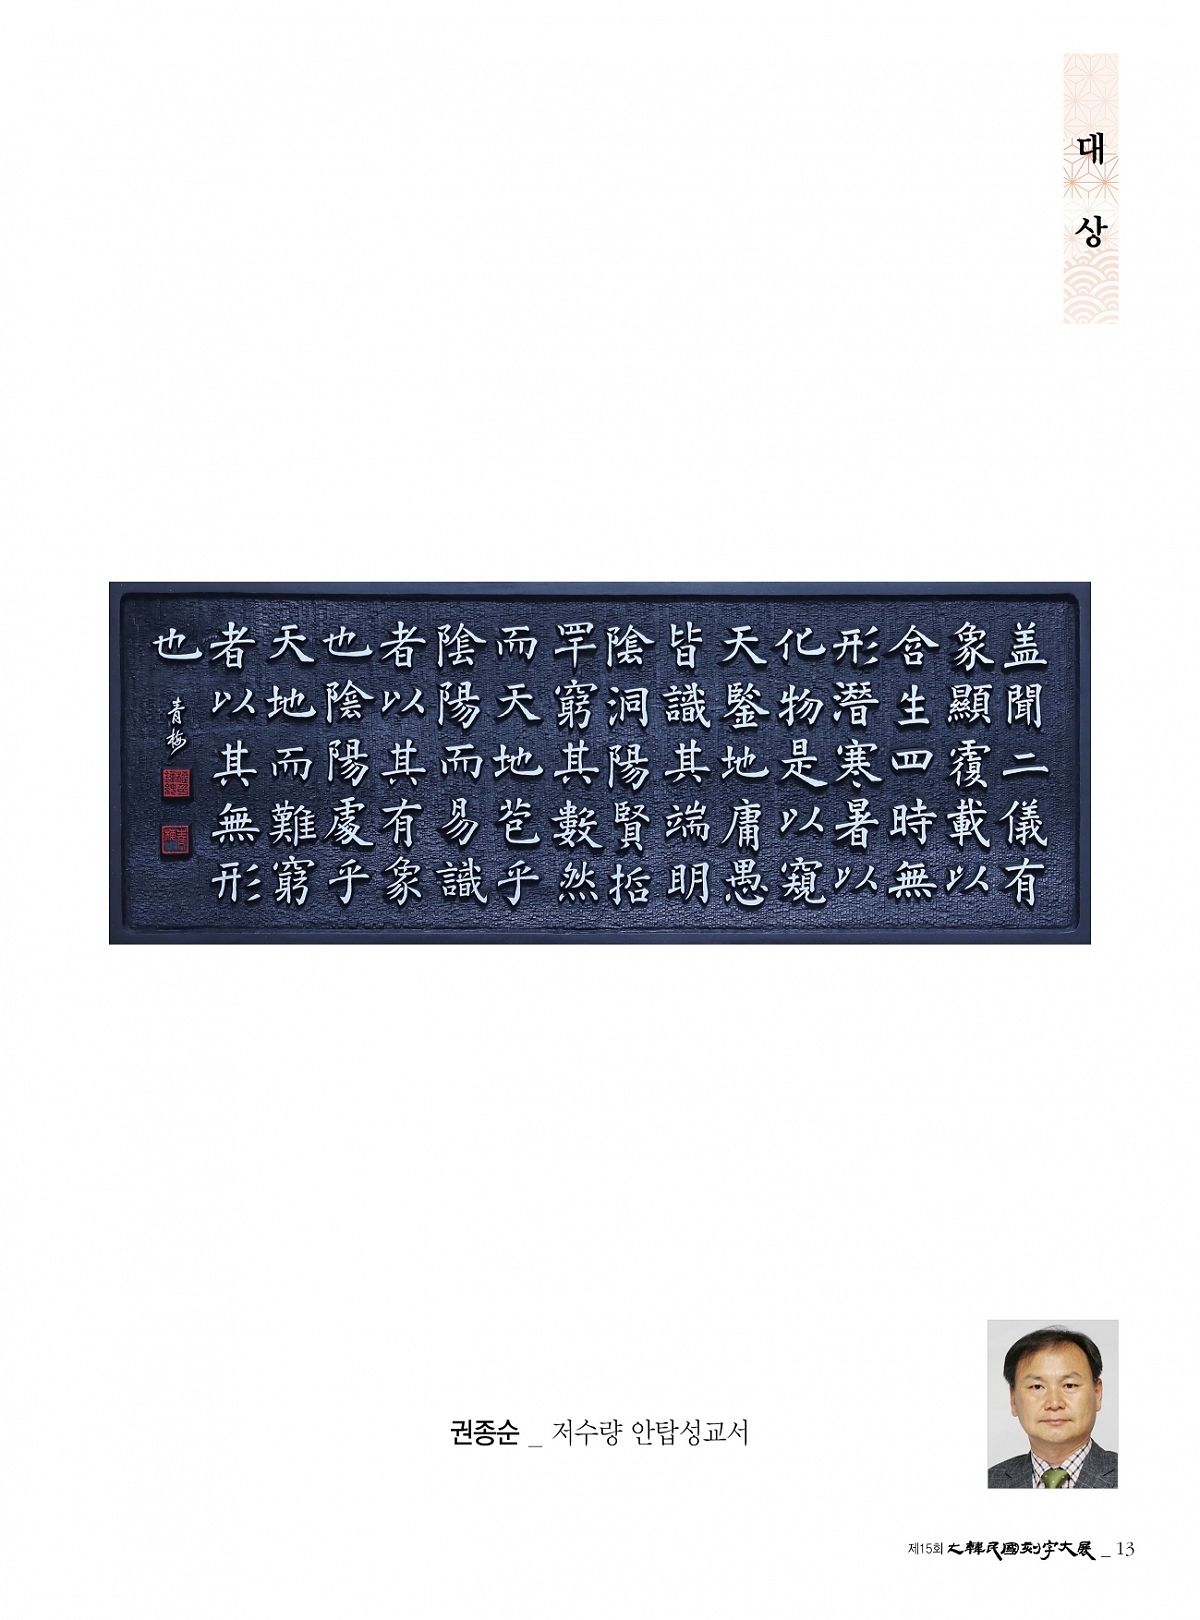 대상
盖聞二儀有
象顯覆載以
含生四時無
形潛寒暑以
化物是以窺
天鑒地庸愚
皆識其端明
陰洞陽賢哲
罕窮其數然
而天地苞乎
陰陽而易識
者以其有象
也陰陽處乎
天地而難窮
者以其無形
也
青梅
권종순 _ 저수량 안탑성교서
제15회 大韓民國刻字大展 _ 13